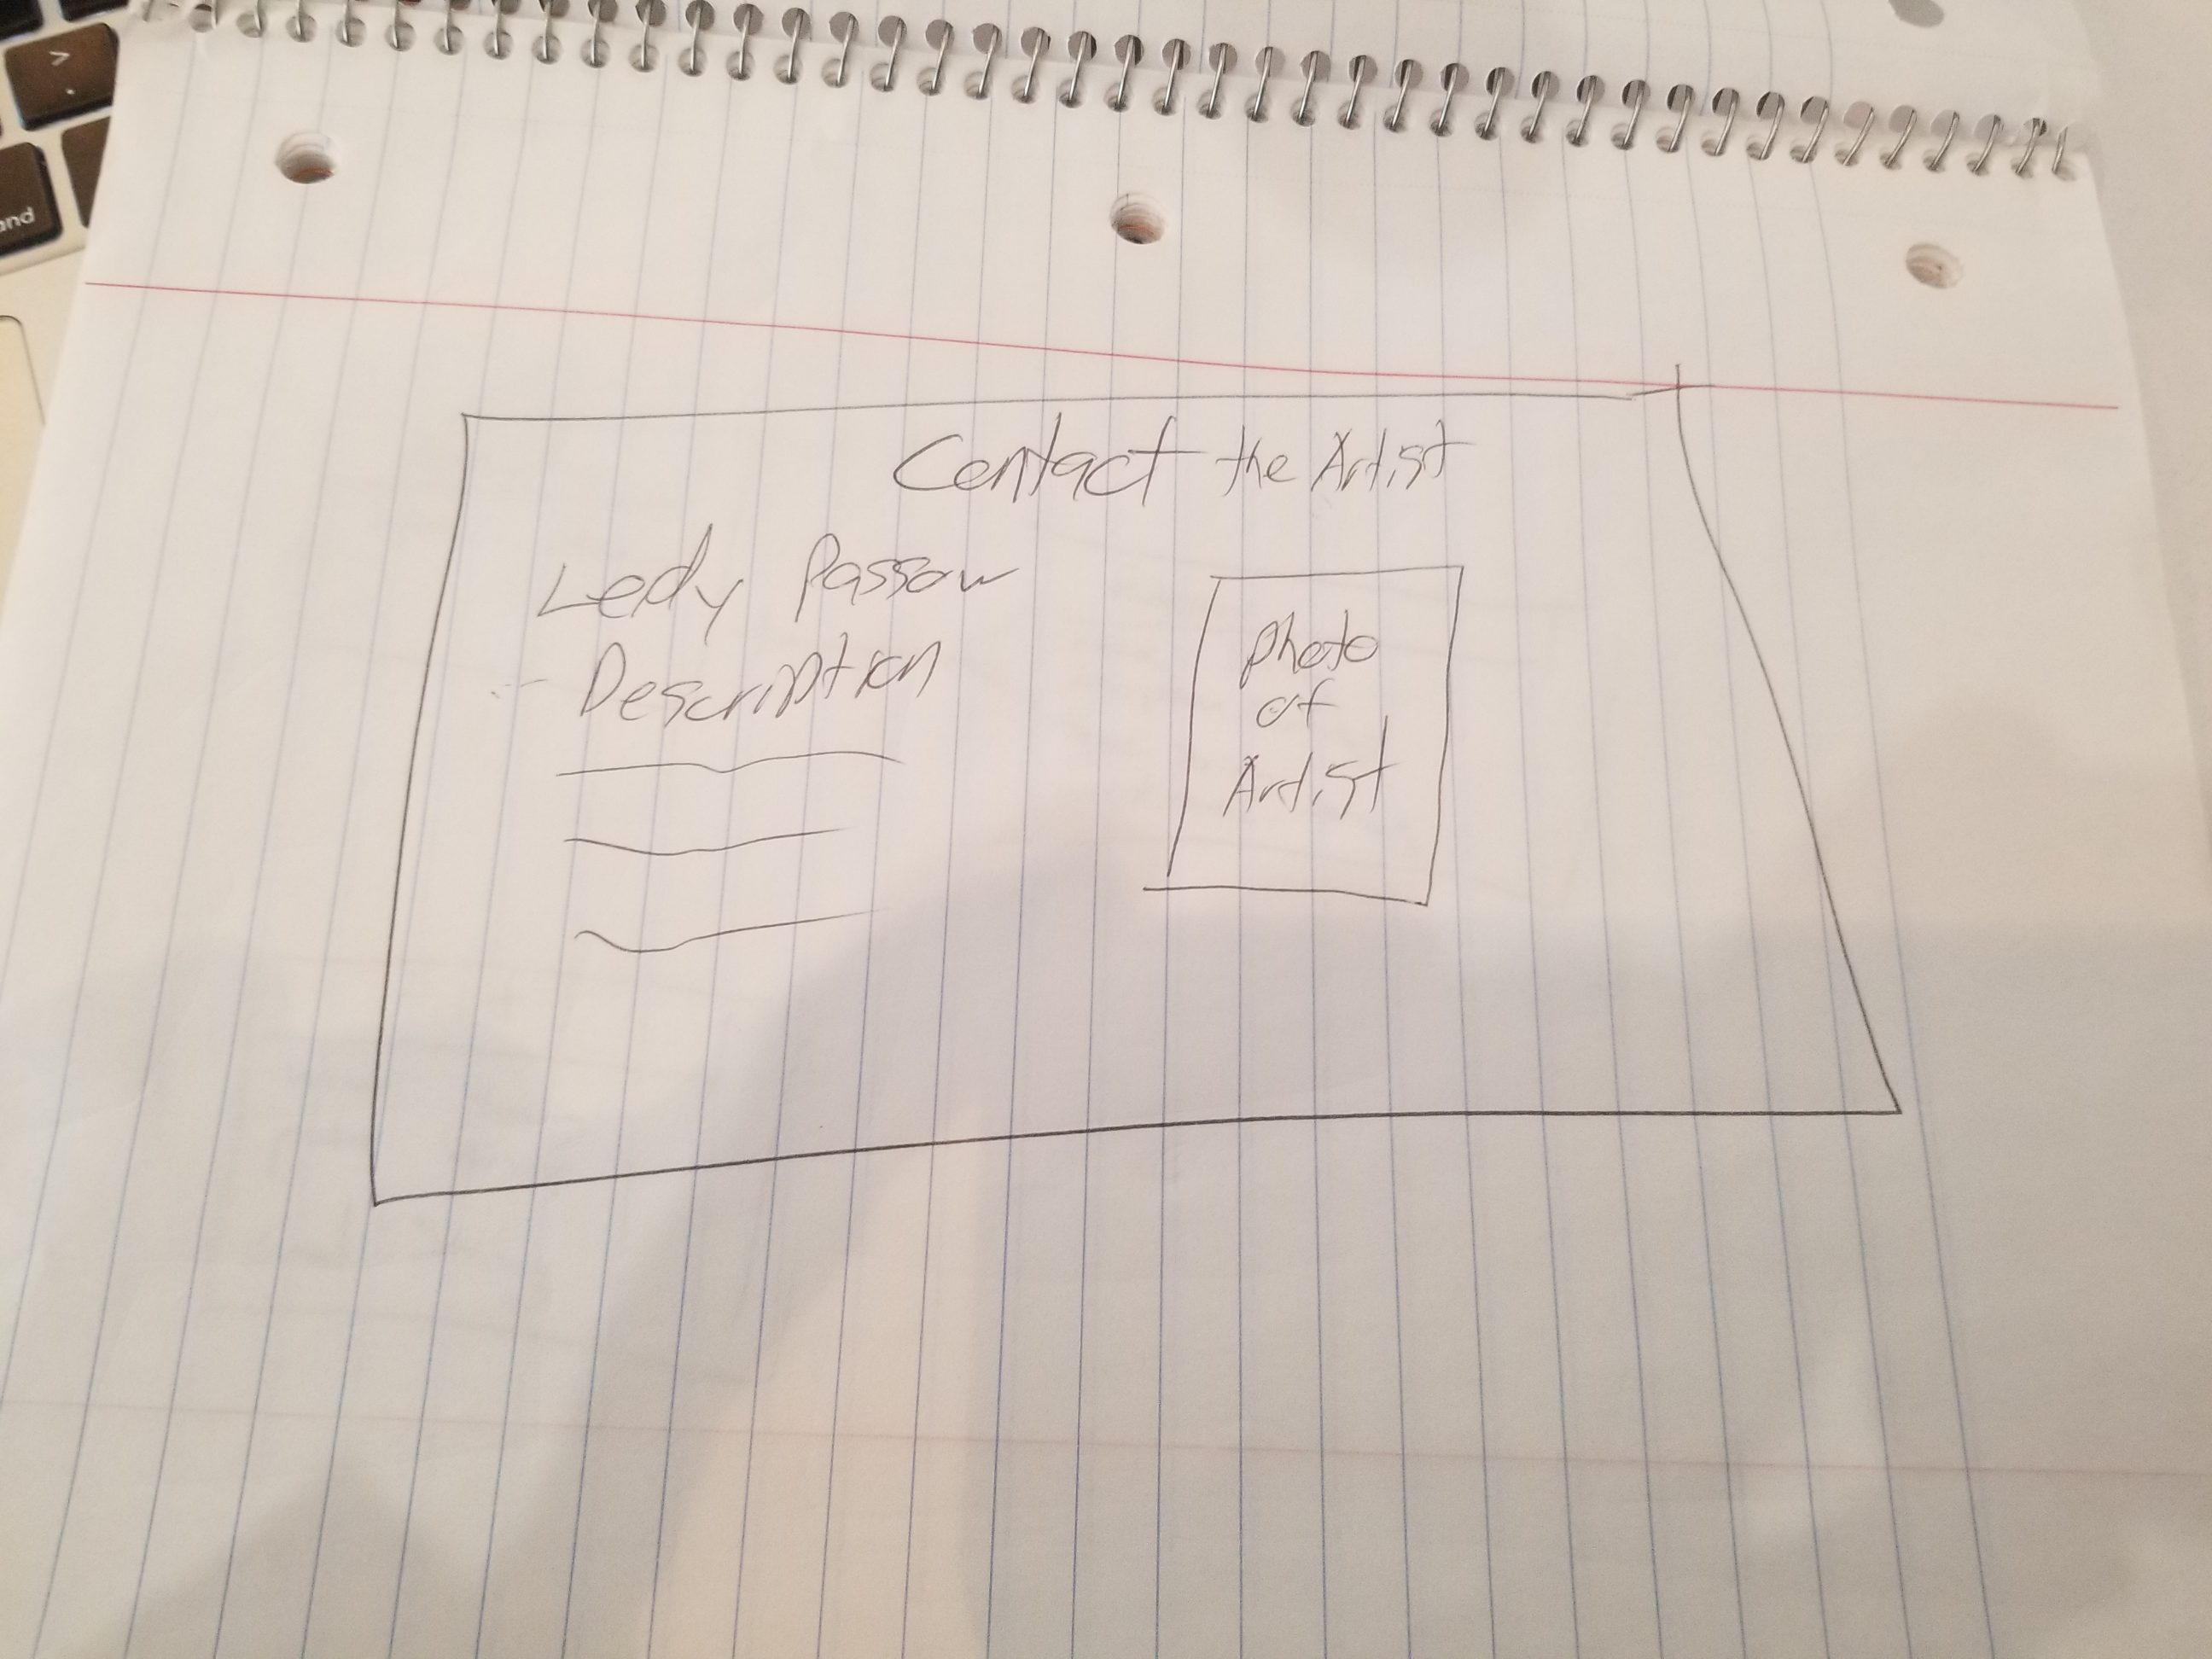 Contact the Artist
Ledy Passow
- Description
Photo
of
Artist
and